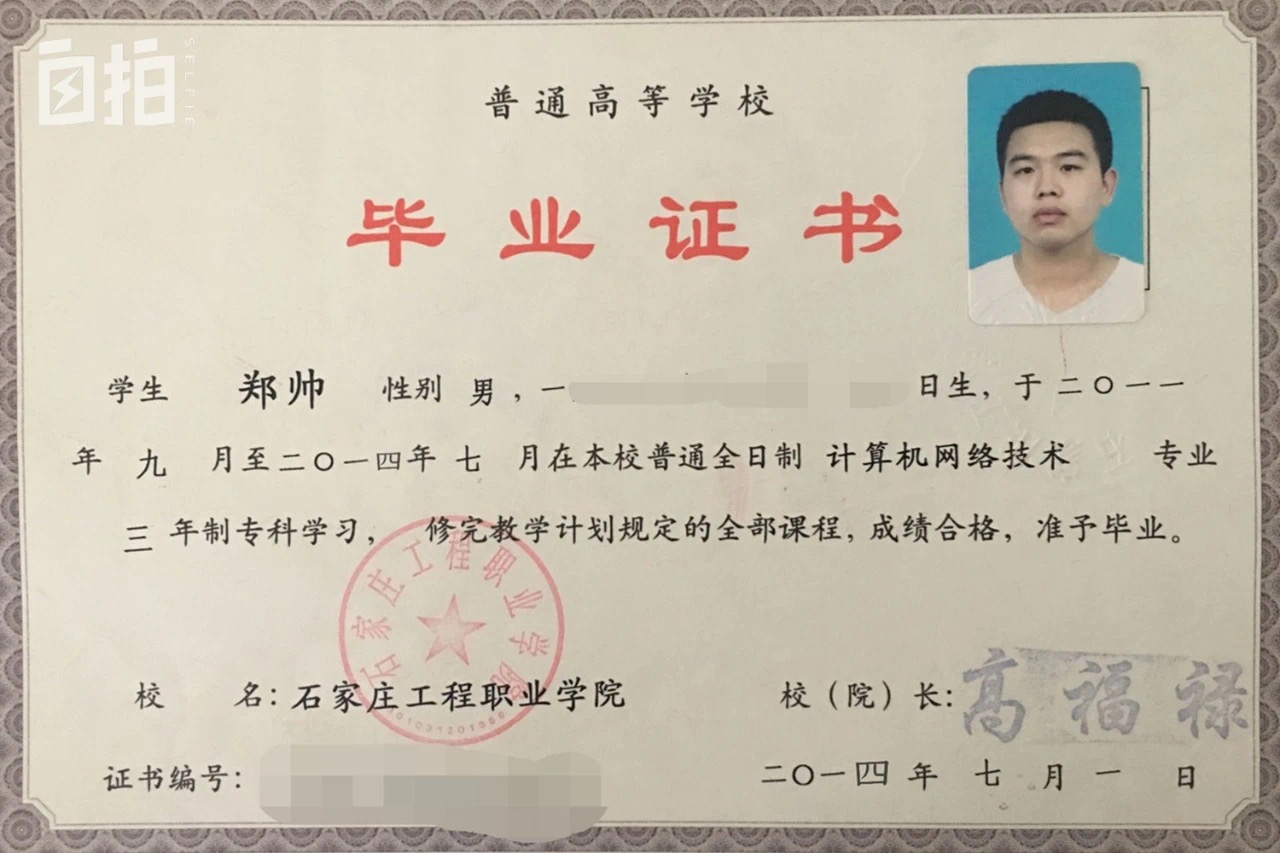 自拍
SELFIE
普通高等学校
毕业证书
学生 郑帅 性别 男，一 日生，于二〇一一
年 九 月至二〇一四年 七 月在本校普通全日制 计算机网络技术 专业
三 年制专科学习， 修完教学计划规定的全部课程，成绩合格，准予毕业。
石家庄工程职业学院
校 名：石家庄工程职业学院 校（院）长：高福禄
证书编号： 二〇一四年 七 月 一 日